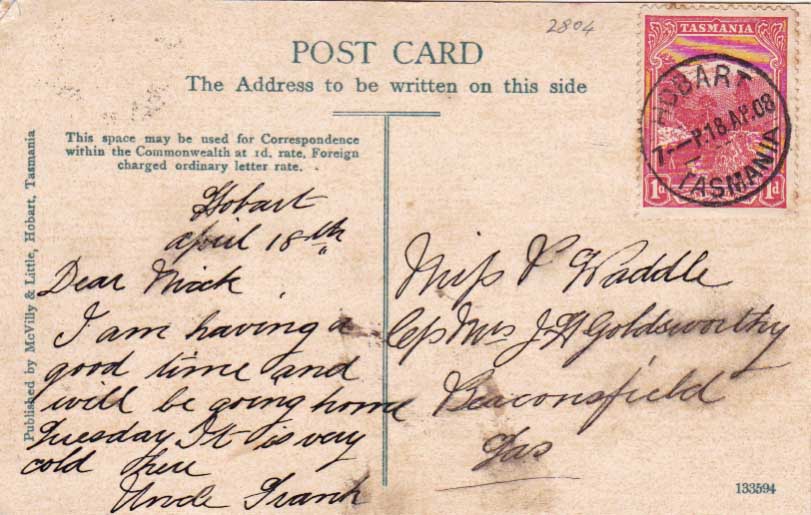 2804
POST CARD
The Address to be written on this side
TASMANIA
HOBART
7 - P.18.AP.08
TASMANIA
1d 1d
This space may be used for Correspondence
within the Commonwealth at 1d. rate, Foreign
charged ordinary letter rate.
Published by McVilly & Little, Hobart, Tasmania
Hobart
April 18th
Dear
I am having a
good time and
will be going home
Tuesday It is very
cold here
Uncle Frank
Miss Waddle
Mrs J H Goldsworthy
Beaconsfield
Tas
133594